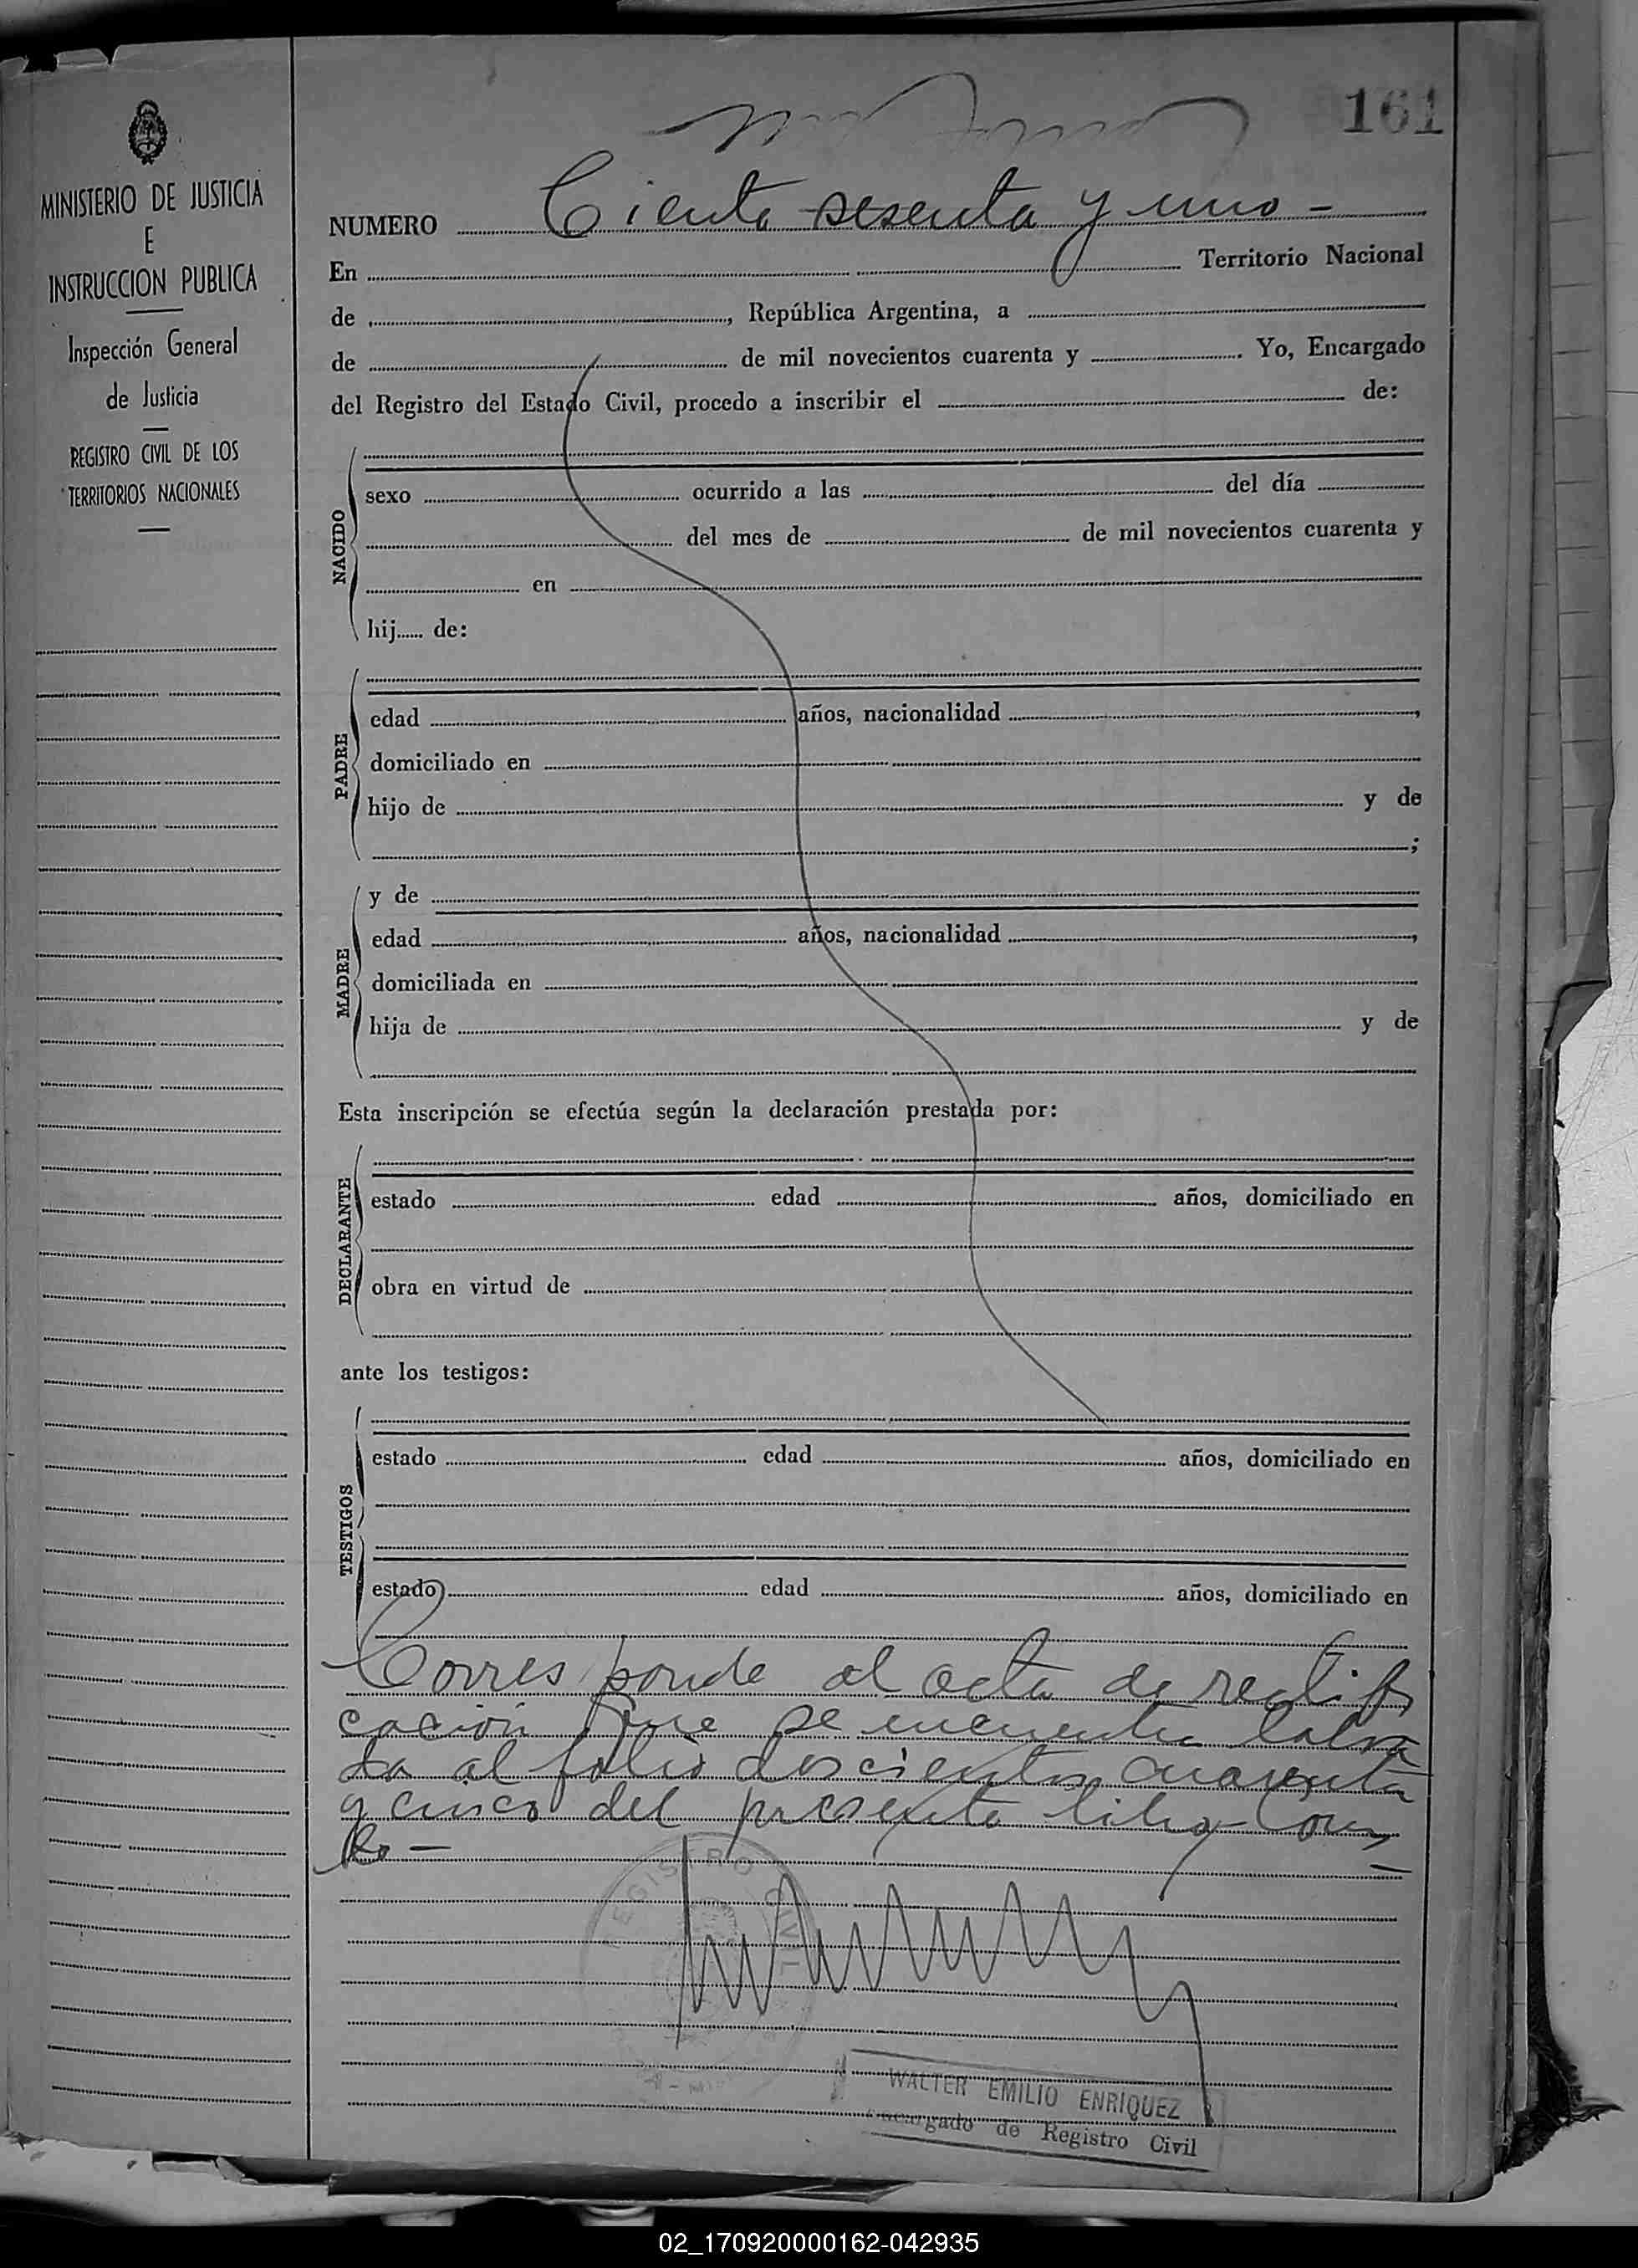 161
MINISTERIO DE JUSTICIA
E
INSTRUCCION PUBLICA
Inspección General
de Justicia
REGISTRO CIVIL DE LOS
TERRITORIOS NACIONALES
NUMERO Ciento sesenta y uno -
En Territorio Nacional
de , República Argentina, a
de de mil novecientos cuarenta y . Yo, Encargado
del Registro del Estado Civil, procedo a inscribir el de:
NACIDO
sexo ocurrido a las del día
del mes de de mil novecientos cuarenta y
en
hij...... de:
PADRE
edad años, nacionalidad ,
domiciliado en
hijo de y de
;
MADRE
y de
edad años, nacionalidad ,
domiciliada en
hija de y de
Esta inscripción se efectúa según la declaración prestada por:
DECLARANTE
estado edad años, domiciliado en
obra en virtud de
ante los testigos:
TESTIGOS
estado edad años, domiciliado en
estado edad años, domiciliado en
Corresponde al acta de rectifi
cación que se encuentra labra
da al folio doscientos cuarenta
y cinco del presente libro
REGISTRO CIVIL
WALTER EMILIO ENRIQUEZ
Encargado de Registro Civil
02_170920000162-042935